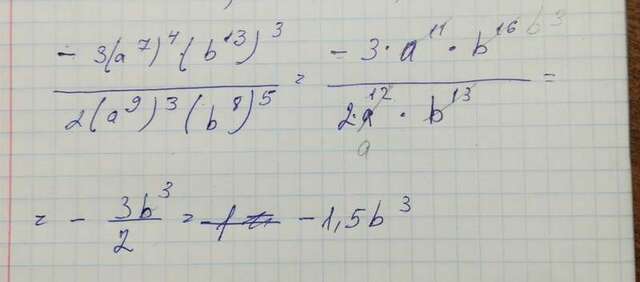 -3(a⁷)⁴(b¹³)³ / 2(a⁹)³(b⁸)⁵ = -3·a¹¹·b¹⁶ b³ / 2·a¹²·b¹³ =
a
= -3b³/2 = -1,5b³